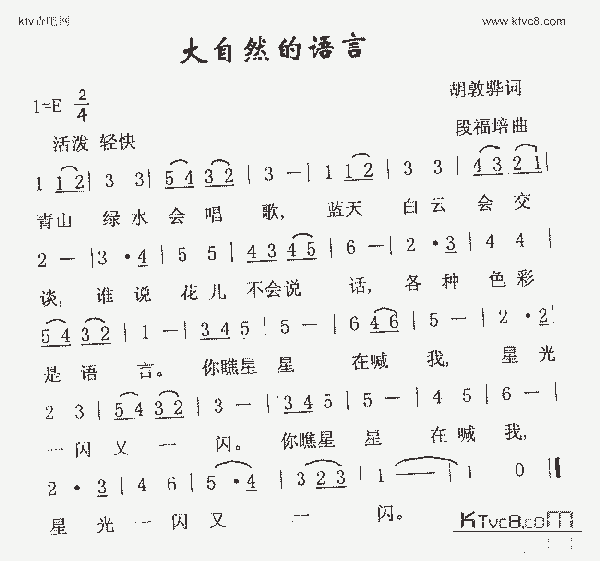 ktv吉吧网 www.ktvc8.com
大自然的语言
1=E 2/4
胡敦骅词
活泼 轻快
段福培曲
1 1 2 | 3 3 | 5 4 3 2 | 3 — | 1 1 2 | 3 3 | 4 3 2 1 |
青山 绿水会唱歌, 蓝天 白云会交
2 — | 3 · 4 | 5 5 | 4 3 4 5 | 6 — | 2 · 3 | 4 4 |
谈, 谁说花儿不会说话, 各种色彩
5 4 3 2 | 1 — | 3 4 5 | 5 — | 6 4 6 | 5 — | 2 · 2 |
是语言。 你瞧星星 在喊我, 星光
2 3 | 5 4 3 2 | 3 — | 3 4 5 | 5 — | 4 5 | 6 — |
一闪又一闪。 你瞧星星 在喊我,
2 · 3 | 4 6 | 5 · 4 | 3 2 3 | 1 — | 1 0 ‖
星光一闪又一闪。
KTvc8.com